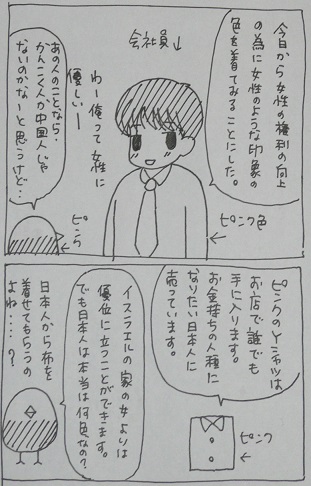 今日から女性の権利の向上
の為に女性のような印象の
色を着てみることにした。
会社員↓
わー俺って女性に
優しいー
ピンク色
←
あの人のことなら・
かんこく人か中国人じゃ
ないのかなーと思うけど・・
ピンク
↓
ピンクのYシャツは
お店で誰でも
手に入ります。
お金持ちの人種に
なりたい日本人に
売っています。
ピンク
←
イスラエルの家の女よりは
優位に立つことができます。
でも日本人は本当は何色なの?
日本人から布を
着せてもらうの
よね・・・・?